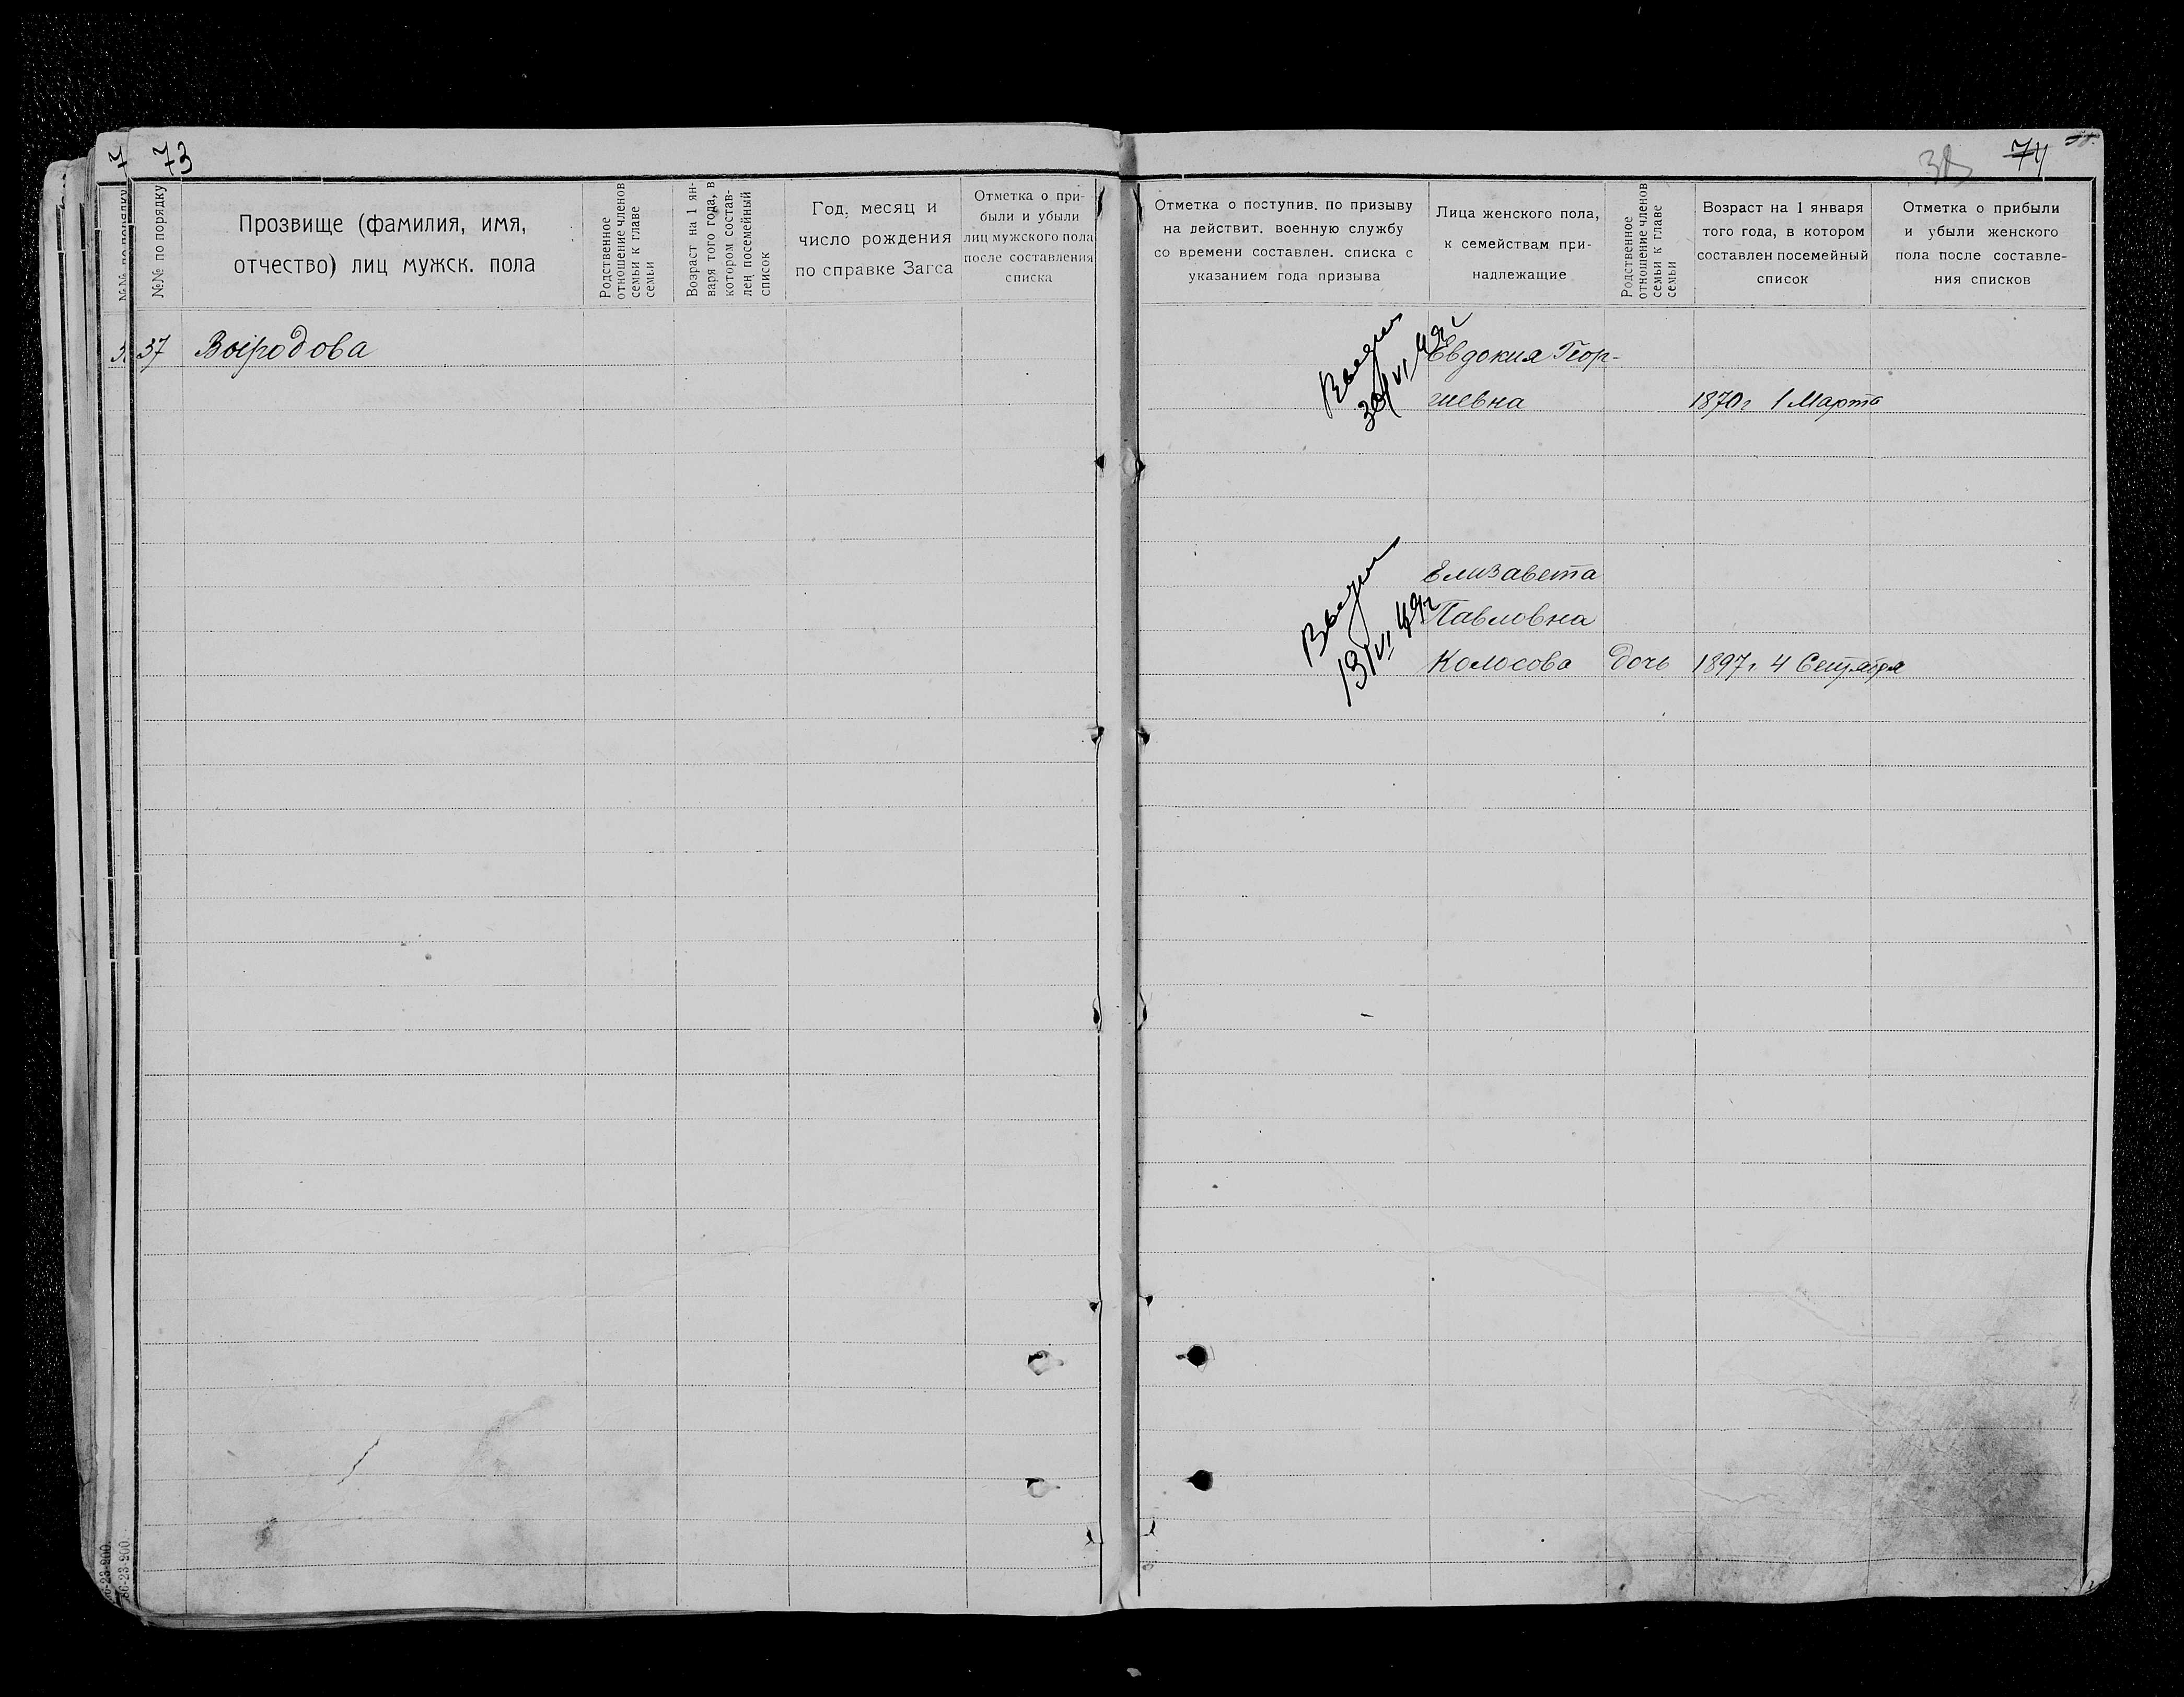 73
№№ по порядку
Прозвище (фамилия, имя,
отчество) лиц мужск. пола
Родственное
отношение членов
семьи к главе
семьи
Возраст на 1 ян-
варя того года, в
котором состав-
лен посемейный
список
Год, месяц и
число рождения
по справке Загса
Отметка о при-
были и убыли
лиц мужского пола
после составления
списка
37 Выродова
74
Отметка о поступив. по призыву
на действит. военную службу
со времени составлен. списка с
указанием года призыва
Лица женского пола,
к семействам при-
надлежащие
Родственное
отношение членов
семьи к главе
семьи
Возраст на 1 января
того года, в котором
составлен посемейный
список
Отметка о прибыли
и убыли женского
пола после составле-
ния списков
Евдокия Геор-
гиевна 1870 г 1 Марта
Елизавета
Павловна
Колосова дочь 1897 г. 4 Сентября